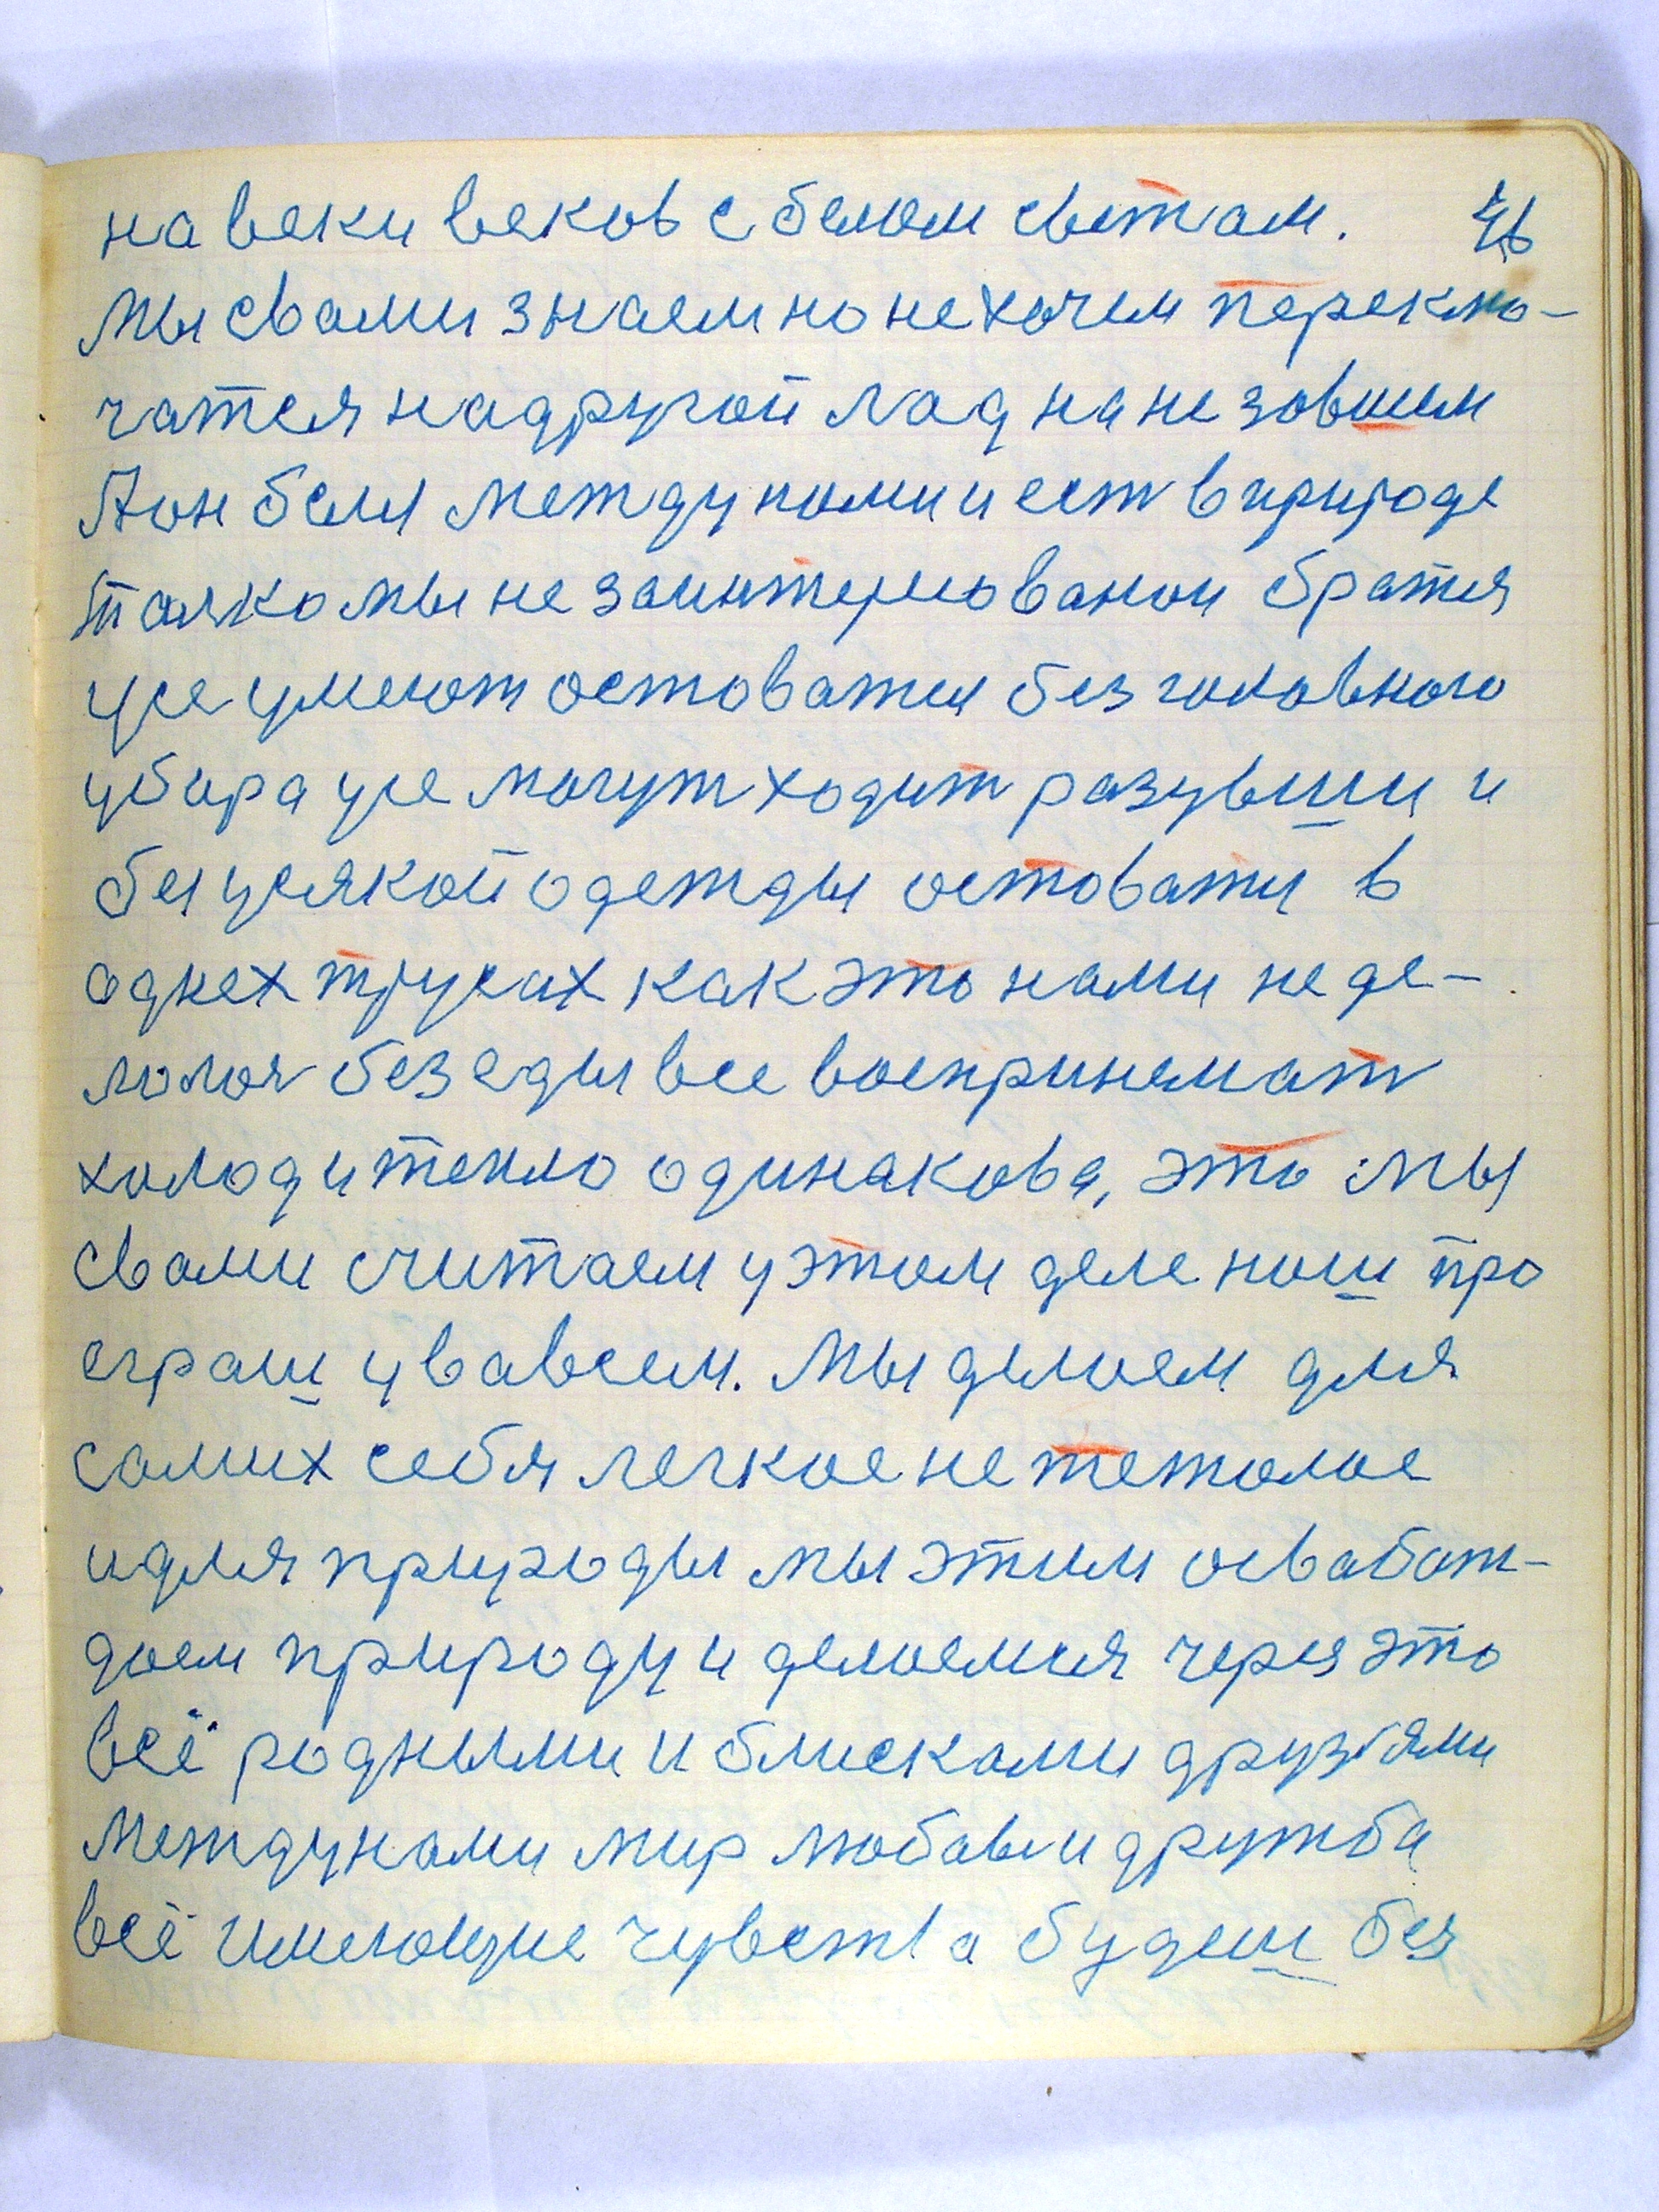 на веки веков с белом светам. 46
Мы свами знаем но не хочем переклю-
чатся на другой лад на незовшем
А он бел между нами и ест в природе
толко мы не заинтерсованои братя
усе умеют остоватся без головного
убора усе могут ходит разувши и
без усякой одежды остоватя в
однех трусах как это нами не де-
лолоя без еды все воспринемат
холод и тепло одинакова, это мы
свами считаем у этом деле нош про
еграш у вавсем. Мы делоем для
самих себя легкое не тежолое
и для природы мы этим освабаж-
доем природу и делоемся через это
всё родными и блискоми друзями
Между нами мир любавь и дружба
всё имеющие чувства будеш без